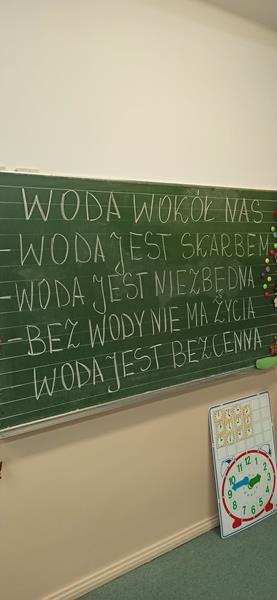 WODA WOKÓŁ NAS
WODA JEST SKARBEM
-WODA JEST NIEZBĘDNA
-BEZ WODY NIE MA ŻYCIA
WODA JEST BEZCENNA
12
11
1
10
2
9
3
8
4
7
5
6